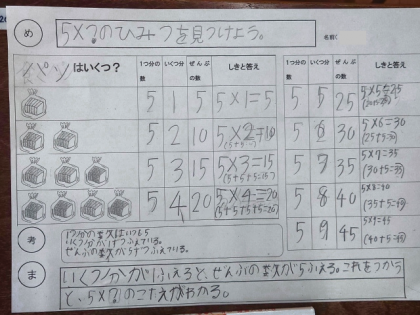 め 5×?のひみつを見つけよう。
名前(
パンはいくつ?
1つ分の数 いくつ分 ぜんぶの数 しきと答え 1つ分の数 いくつ分 ぜんぶの数 しきと答え
5 1 5 5×1=5
5 5 25 5×5=25
(20+5=25)
5 2 10 5×2=10
(5+5=10)
5 6 30 5×6=30
(25+5=30)
5 3 15 5×3=15
(5+5+5=15)
5 7 35 5×7=35
(30+5=35)
5 4 20 5×4=20
(5+5+5+5=20)
5 8 40 5×8=40
(35+5=40)
5 9 45 5×9=45
(40+5=45)
考 1つ分の数はいつも
いくつ分が1ずつふえている。
ぜんぶの数が5ずつふえている。
ま いくつ分が1ふえると、ぜんぶの数が5ふえる。これをつかう
と、5×?のこたえがわかる。